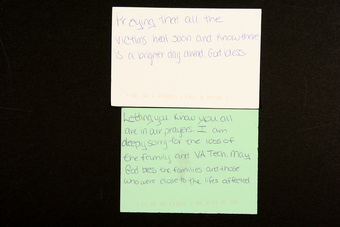 Praying that all the
victims heal soon and know there
is a brighter day ahead. God bless
Letting you know you all
are in our prayers. I am
deeply sorry for the loss of
the family and VA Tech. May
God bless the families and those
who were close to the lifes affected